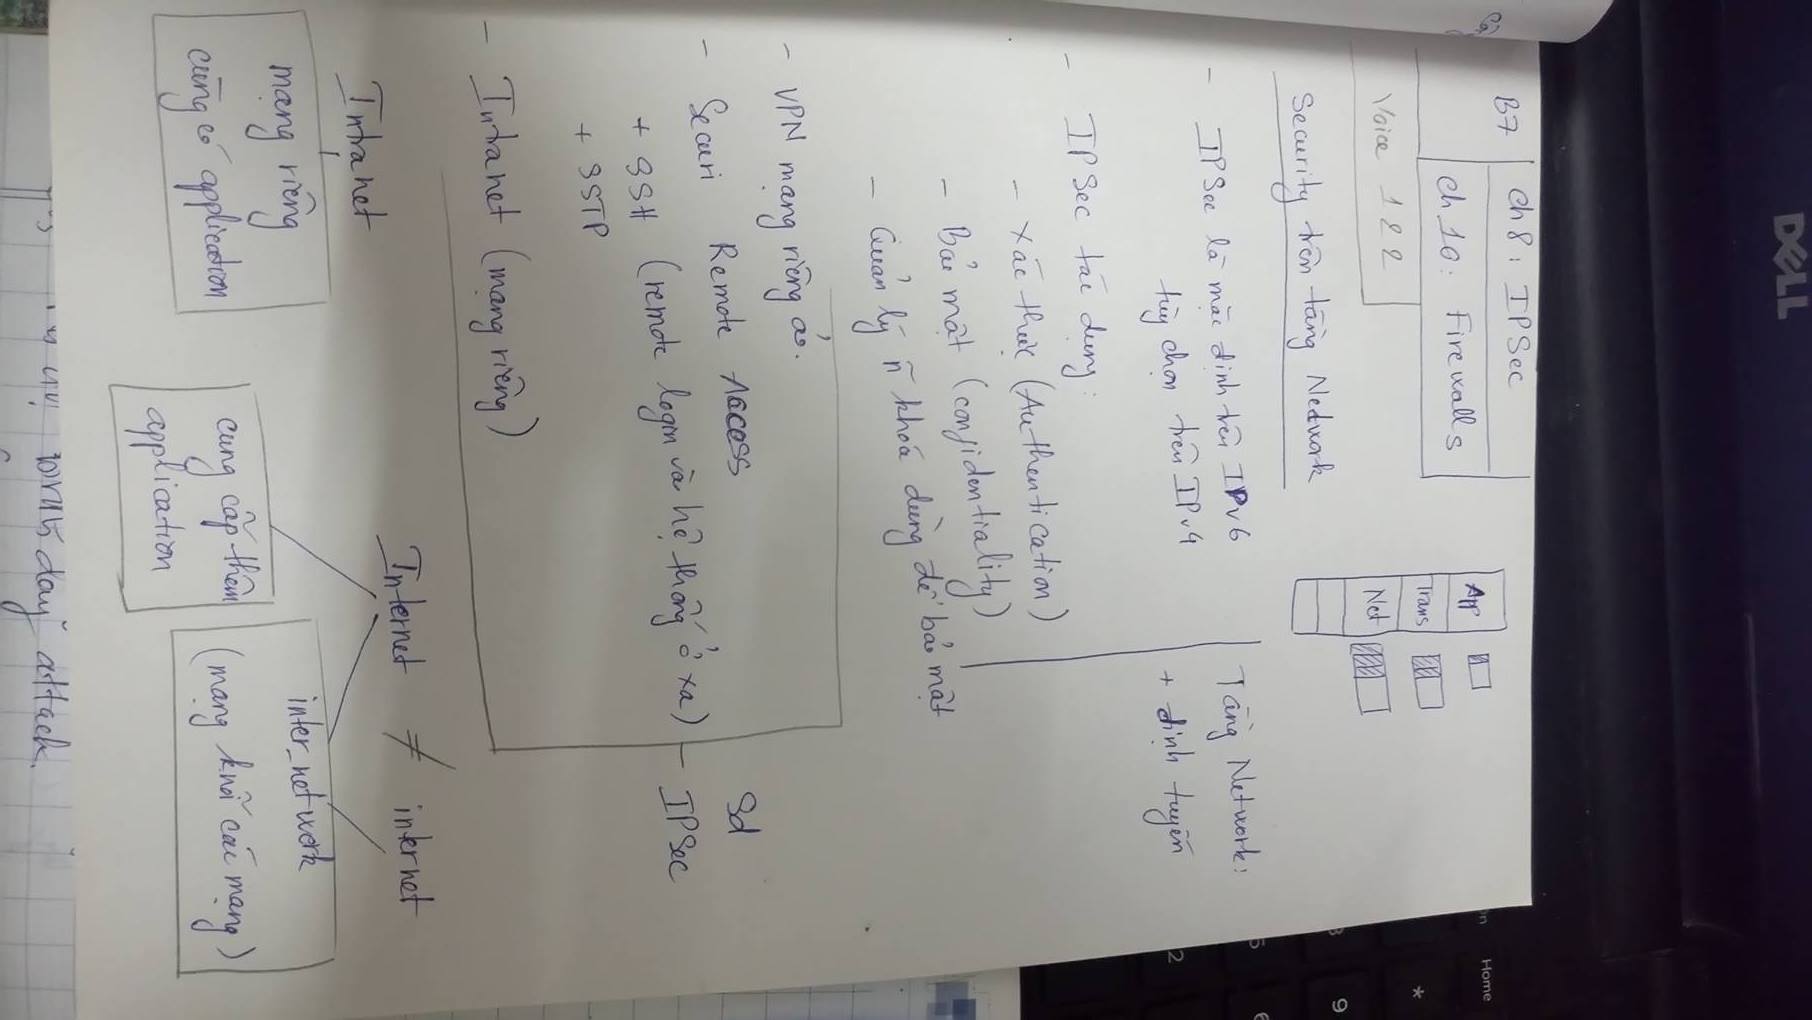 DELL
Home
*
9
5
6
2
B7
Ch 8: IPSec
Ch 10: Firewalls
Voice 122
App
Trans
Net
Security trên tầng Network
- IPSec là mặc định trên IPv6
tùy chọn trên IPv4
Tầng Network:
+ định tuyến
- IPSec tác dụng:
- Xác thực (Authentication)
- Bảo mật (confidentiality)
- Quản lý ñ khoá dùng để bảo mật
- VPN mạng riêng ảo.
- Securi Remote Access
+ SSH (remote login vào hệ thống ở xa)
+ SSTP
- Intranet (mạng riêng)
Sd
IPSec
Internet ≠ internet
Intranet
mạng riêng
cũng có application
cung cấp thêm
application
inter_network
(mạng knối các mạng)
day" attack.